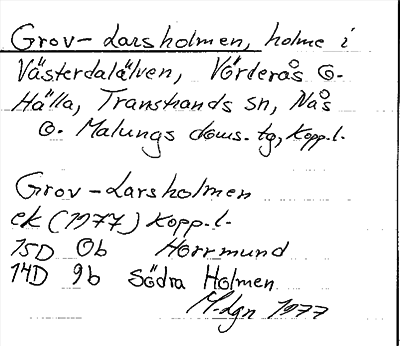 Grov-Larsholmen, holme i
Västerdalälven, Vörderås o.
Hälla, Transtrands sn, Nås
o. Malungs doms. tg, Kopp.l.
Grov-Larsholmen
ek (1977) Kopp.l.
15D 0b Horrmund
14D 9b Södra Holmen
M.dgn 1977